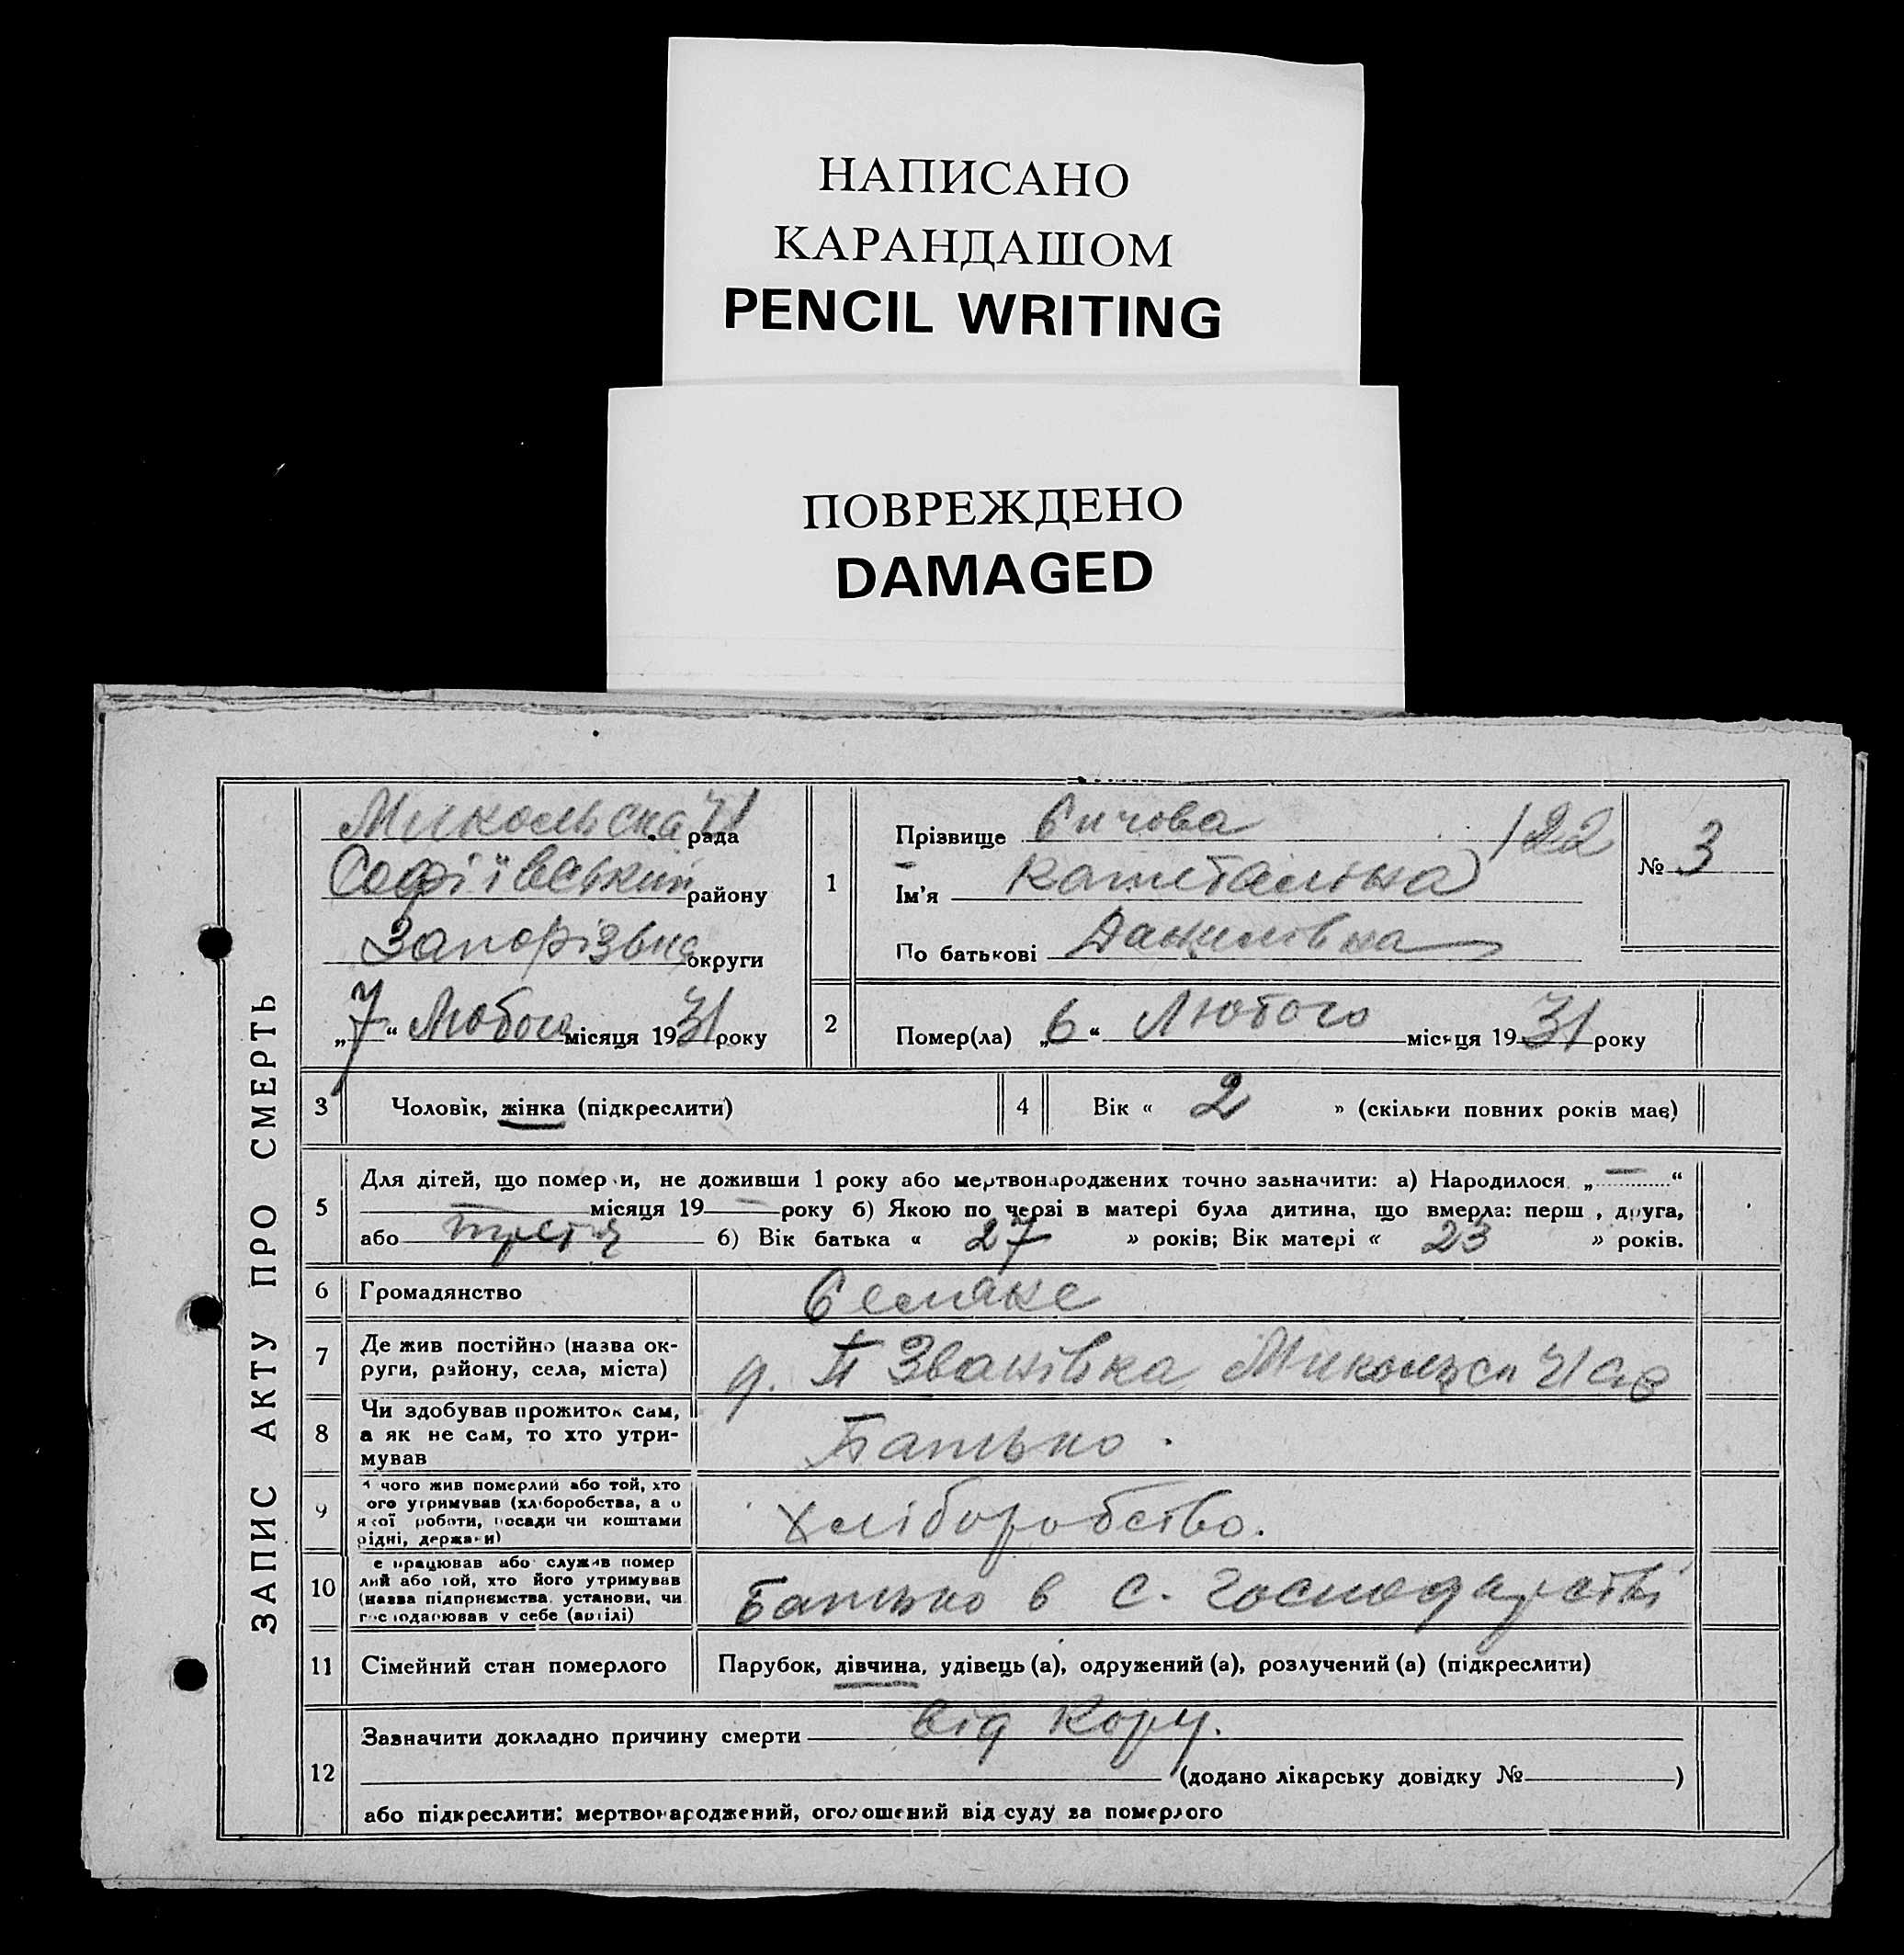 НАПИСАНО
КАРАНДАШОМ
PENCIL WRITING
ПОВРЕЖДЕНО
DAMAGED
ЗАПИС АКТУ ПРО СМЕРТЬ
Микольська ЧІ рада
Софіївський району
Запорізька округи
„7“ Лютого місяця 1931 року
1
Прізвище Сичова 122
Ім'я
По батькові Данилівна
№ 3
2
Помер(ла) „6“ Лютого місяця 1931 року
3 Чоловік, жінка (підкреслити)
4 Вік « 2 » (скільки повних років має)
5 Для дітей, що помер и, не доживши 1 року або мертвонароджених точно зазначити: а) Народилося „—“
місяця 19— року б) Якою по черзі в матері була дитина, що вмерла: перш , друга,
або третя 6) Вік батька « 27 » років; Вік матері « 23 » років.
6 Громадянство Селяне
7 Де жив постійно (назва ок-
руги, району, села, міста)
Званівка
8 Чи здобував прожиток сам,
а як не сам, то хто утри-
мував
Батько.
9 чого жив померлий або той, хто
ого утримував (хліборобства, а о
якої роботи, посади чи коштами
рідні, держави)
Хліборобство.
10 е працював або служив помер
лий або той, хто його утримував
(назва підприємства установи, чи
господарював у себе (артілі)
Батько в с. господарстві
11 Сімейний стан померлого Парубок, дівчина, удівець (а), одружений (а), розлучений (а) (підкреслити)
12 Зазначити докладно причину смерти від кору.
(додано лікарську довідку № )
або підкреслити: мертвонароджений, оголошений від суду за померлого